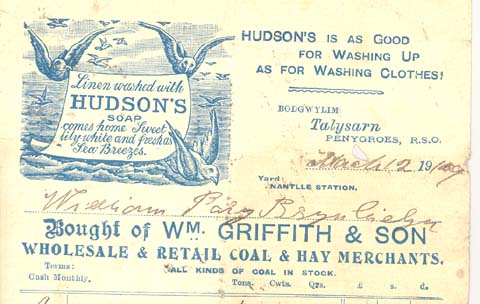 Linen washed with
HUDSON'S
SOAP
comes home Sweet
ely white and fresh as
Sea Breezes.
HUDSON'S IS AS GOOD
FOR WASHING UP
AS FOR WASHING CLOTHES!
BODGWYLIM
Talysarn
PENYGROES, R.S.O.
March 12 1909
Yard:
NANTLLE STATION.
William
Bought of WM. GRIFFITH & SON
WHOLESALE & RETAIL COAL & HAY MERCHANTS.
Terms: ALL KINDS OF COAL IN STOCK.
Cash Monthly. Tons. Cwts. Qrs. £ s. d.